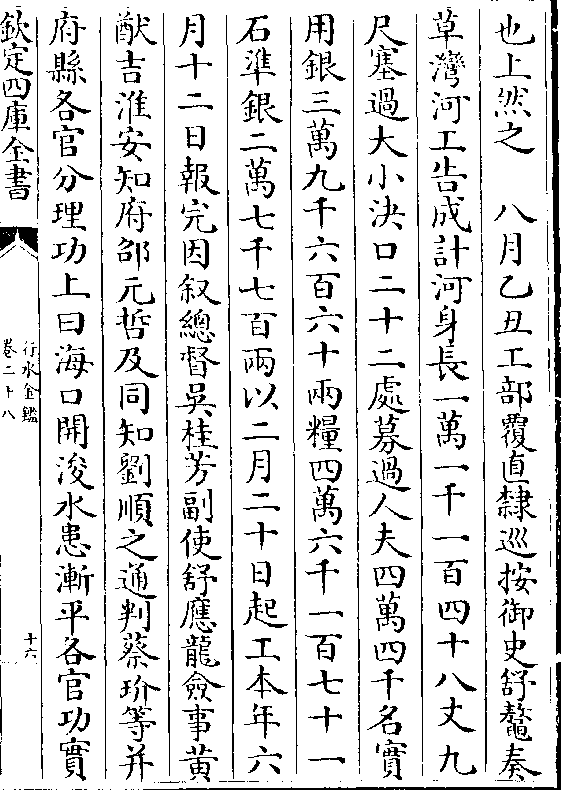 也上然之　　八月乙丑工部覆直隸巡按御史舒鰲奏
草灣河工告成計河身長一萬一千一百四十八丈九
尺塞過大小決口二十二處募過人夫四萬四千名實
用銀三萬九千六百六十兩糧四萬六千一百七十一
石準銀二萬七千七百兩以二月二十日起工本年六
月十二日報完因叙總督吳桂芳副使舒應龍僉事黃
猷吉淮安知府邵元哲及同知劉順之通判蔡玠等并
府縣各官分理功上曰海口開浚水患漸平各官功實
欽定四庫全書
行水金鑑
卷二十八
十六